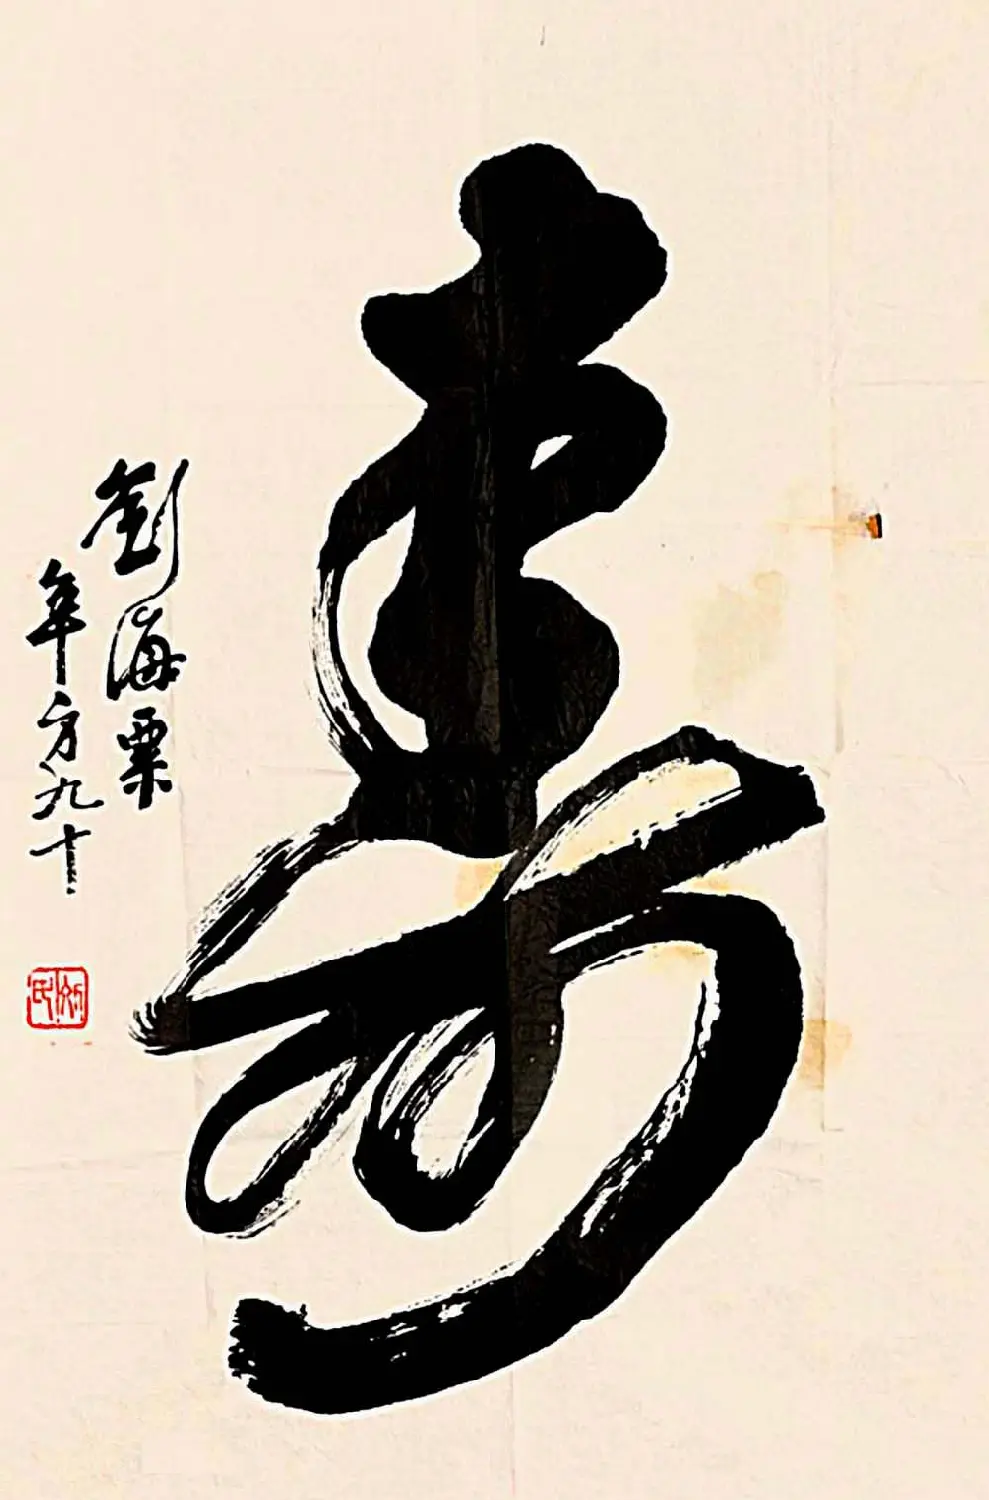 壽
劉海粟
年方九十
刘氏